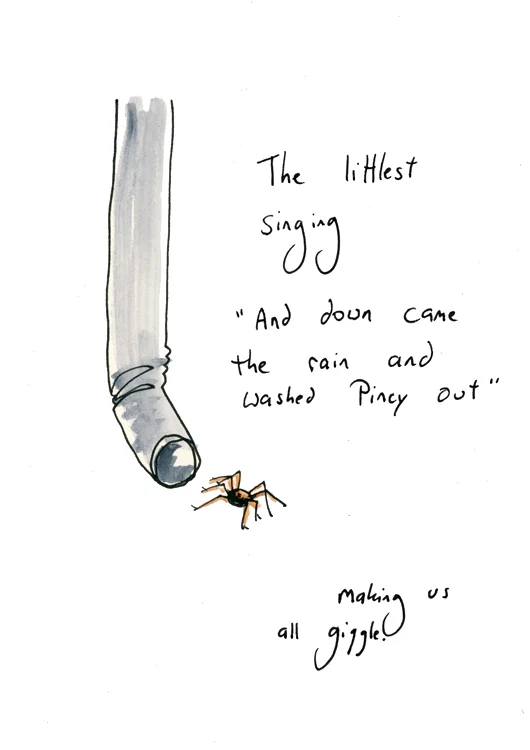 The littlest
singing
"And down came
the rain and
washed Pincy out"
making us
all giggle!